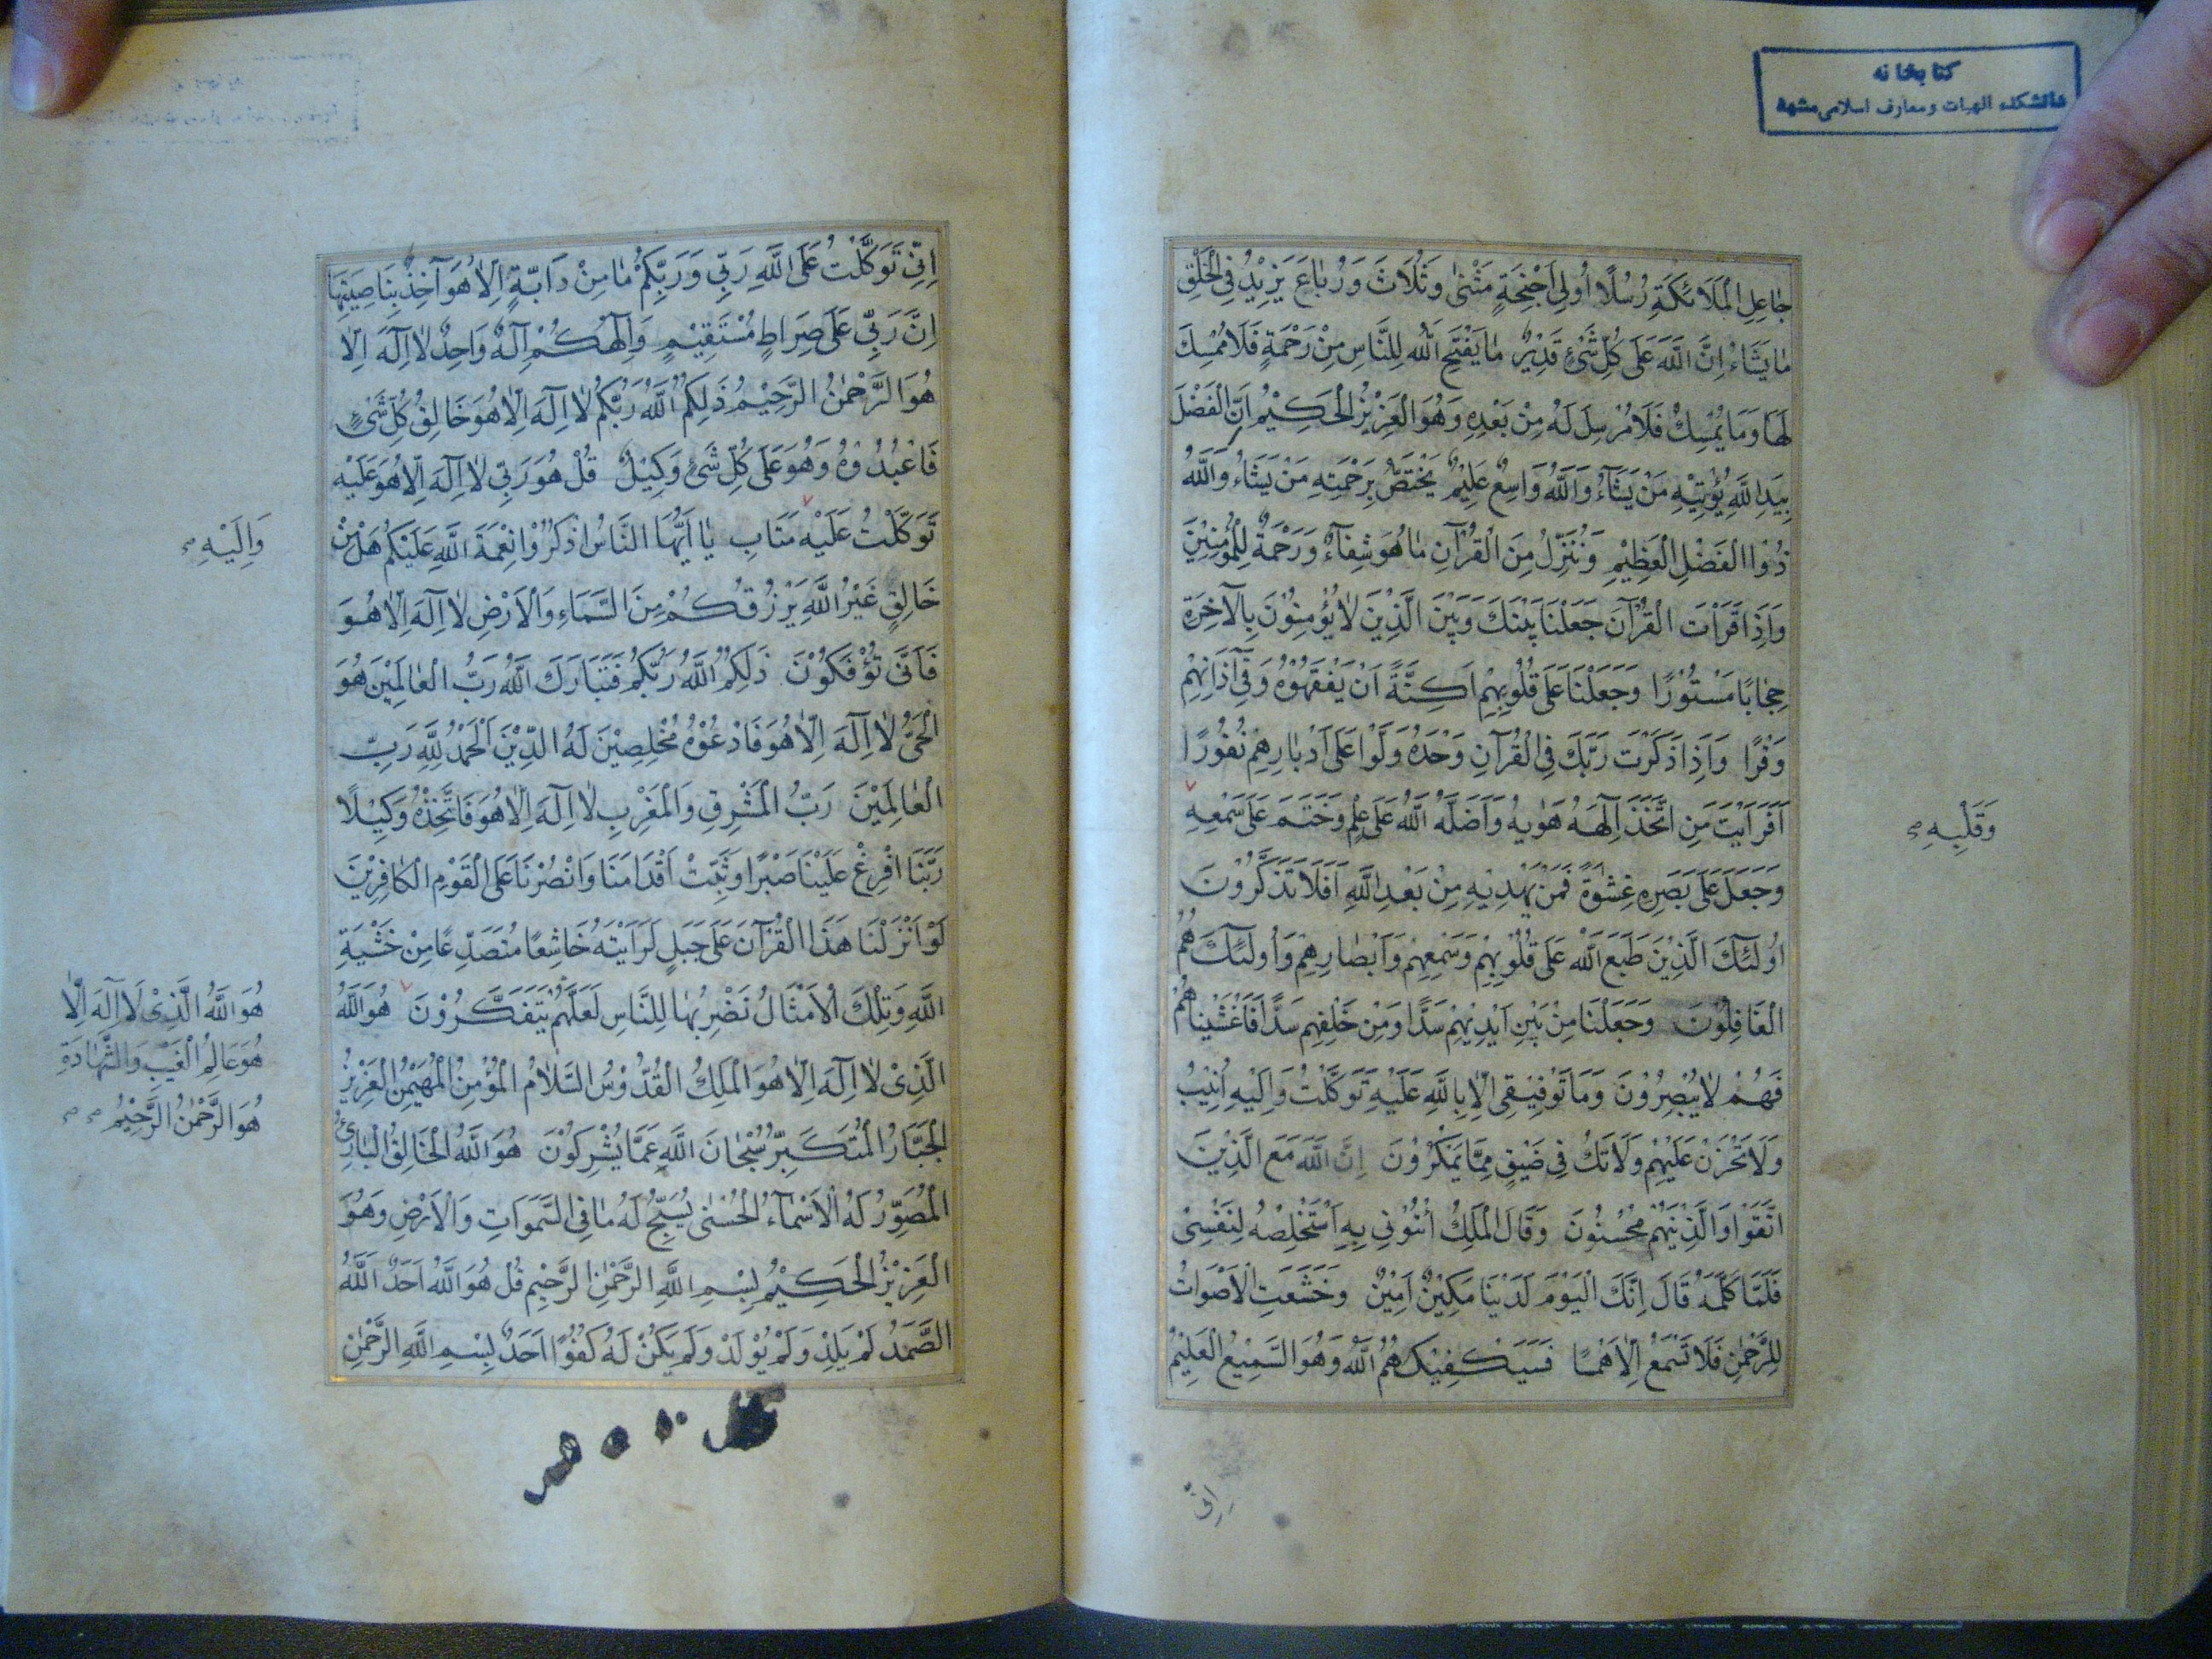 كتابخانه
دانشكده الهيات ومعارف اسلامى مشهد
جَاعِلِ الْمَلَائِكَةِ رُسُلًا اُولِي اَجْنِحَةٍ مَثْنٰى وَثُلَاثَ وَرُبَاعَ يَزِيْدُ فِي الْخَلْقِ
مَا يَشَاءُ اِنَّ اللَّهَ عَلَى كُلِّ شَيْءٍ قَدِيْرٌ مَا يَفْتَحِ اللَّهُ لِلنَّاسِ مِنْ رَحْمَةٍ فَلَا مُمْسِكَ
لَهَا وَمَا يُمْسِكْ فَلَا مُرْسِلَ لَهُ مِنْ بَعْدِهِ وَهُوَ الْعَزِيْزُ الْحَكِيْمُ اِنَّ الْفَضْلَ
بِيَدِ اللَّهِ يُؤْتِيْهِ مَنْ يَشَآءُ وَاللَّهُ وَاسِعٌ عَلِيْمٌ يَخْتَصُّ بِرَحْمَتِهِ مَنْ يَشَاءُ وَاللَّهُ
ذُوْا الْفَضْلِ الْعَظِيْمِ وَنُنَزِّلُ مِنَ الْقُرْآنِ مَا هُوَ شِفَآءٌ وَرَحْمَةٌ لِلْمُؤْمِنِيْنَ
وَاِذَا قَرَاْتَ الْقُرْآنَ جَعَلْنَا بَيْنَكَ وَبَيْنَ الَّذِيْنَ لَا يُؤْمِنُوْنَ بِالْآخِرَةِ
حِجَابًا مَسْتُوْرًا وَجَعَلْنَا عَلَى قُلُوْبِهِمْ اَكِنَّةً اَنْ يَفْقَهُوْهُ وَفِي آذَانِهِمْ
وَقْرًا وَاِذَا ذَكَرْتَ رَبَّكَ فِي الْقُرْآنِ وَحْدَهُ وَلَّوْا عَلَى اَدْبَارِهِمْ نُفُوْرًا
اَفَرَاَيْتَ مَنِ اتَّخَذَ اِلٰهَهُ هَوٰيهُ وَاَضَلَّهُ اللَّهُ عَلَى عِلْمٍ وَخَتَمَ عَلَى سَمْعِهِ
وَقَلْبِهِ صح
وَجَعَلَ عَلَى بَصَرِهِ غِشٰوَةً فَمَنْ يَهْدِيْهِ مِنْ بَعْدِ اللَّهِ اَفَلَا تَذَكَّرُوْنَ
اُولٰئِكَ الَّذِيْنَ طَبَعَ اللَّهُ عَلَى قُلُوْبِهِمْ وَسَمْعِهِمْ وَاَبْصَارِهِمْ وَاُولٰئِكَ هُمُ
الْغَافِلُوْنَ وَجَعَلْنَا مِنْ بَيْنِ اَيْدِيْهِمْ سَدًّا وَمِنْ خَلْفِهِمْ سَدًّا فَاَغْشَيْنَاهُمْ
فَهُمْ لَا يُبْصِرُوْنَ وَمَا تَوْفِيْقِي اِلَّا بِاللَّهِ عَلَيْهِ تَوَكَّلْتُ وَاِلَيْهِ اُنِيْبُ
وَلَا تَحْزَنْ عَلَيْهِمْ وَلَا تَكُ فِي ضَيْقٍ مِمَّا يَمْكُرُوْنَ اِنَّ اللَّهَ مَعَ الَّذِيْنَ
اتَّقَوْا وَالَّذِيْنَهُمْ مُحْسِنُوْنَ وَقَالَ الْمَلِكُ ائْتُوْنِي بِهِ اَسْتَخْلِصْهُ لِنَفْسِيْ
فَلَمَّا كَلَّمَهُ قَالَ اِنَّكَ الْيَوْمَ لَدَيْنَا مَكِيْنٌ اَمِيْنٌ وَخَشَعَتِ الْاَصْوَاتُ
لِلرَّحْمٰنِ فَلَا تَسْمَعُ اِلَّا هَمْسًا فَسَيَكْفِيْكَهُمُ اللَّهُ وَهُوَ السَّمِيْعُ الْعَلِيْمُ
اِنّي
اِنِّي تَوَكَّلْتُ عَلَى اللَّهِ رَبِّي وَرَبِّكُمْ مَا مِنْ دَابَّةٍ اِلَّا هُوَ آخِذٌ بِنَاصِيَتِهَا
اِنَّ رَبِّي عَلَى صِرَاطٍ مُسْتَقِيْمٍ وَاِلٰهُكُمْ اِلٰهٌ وَاحِدٌ لَا اِلٰهَ اِلَّا
هُوَ الرَّحْمٰنُ الرَّحِيْمُ ذَلِكُمُ اللَّهُ رَبُّكُمْ لَا اِلٰهَ اِلَّا هُوَ خَالِقُ كُلِّ شَيْءٍ
فَاعْبُدُوْهُ وَهُوَ عَلَى كُلِّ شَيْءٍ وَكِيْلٌ قُلْ هُوَ رَبِّي لَا اِلٰهَ اِلَّا هُوَ عَلَيْهِ
تَوَكَّلْتُ عَلَيْهِ مَتَابِ يَا اَيُّهَا النَّاسُ اذْكُرُوْا نِعْمَةَ اللَّهِ عَلَيْكُمْ هَلْ مِنْ
وَاِلَيْهِ صح
خَالِقٍ غَيْرُ اللَّهِ يَرْزُقُكُمْ مِنَ السَّمَاءِ وَالْاَرْضِ لَا اِلٰهَ اِلَّا هُوَ
فَاَنَّى تُؤْفَكُوْنَ ذَلِكُمُ اللَّهُ رَبُّكُمْ فَتَبَارَكَ اللَّهُ رَبُّ الْعَالَمِيْنَ هُوَ
الْحَيُّ لَا اِلٰهَ اِلَّا هُوَ فَادْعُوْهُ مُخْلِصِيْنَ لَهُ الدِّيْنَ اَلْحَمْدُ لِلَّهِ رَبِّ
الْعَالَمِيْنَ رَبُّ الْمَشْرِقِ وَالْمَغْرِبِ لَا اِلٰهَ اِلَّا هُوَ فَاتَّخِذْهُ وَكِيْلًا
رَبَّنَا اَفْرِغْ عَلَيْنَا صَبْرًا وَثَبِّتْ اَقْدَامَنَا وَانْصُرْنَا عَلَى الْقَوْمِ الْكَافِرِيْنَ
لَوْ اَنْزَلْنَا هَذَا الْقُرْآنَ عَلَى جَبَلٍ لَرَاَيْتَهُ خَاشِعًا مُتَصَدِّعًا مِنْ خَشْيَةِ
اللَّهِ وَتِلْكَ الْاَمْثَالُ نَضْرِبُهَا لِلنَّاسِ لَعَلَّهُمْ يَتَفَكَّرُوْنَ هُوَ اللَّهُ
هُوَ اللَّهُ الَّذِيْ لَا اِلٰهَ اِلَّا
هُوَ عَالِمُ الْغَيْبِ وَالشَّهَادَةِ
هُوَ الرَّحْمٰنُ الرَّحِيْمُ صح صح
الَّذِيْ لَا اِلٰهَ اِلَّا هُوَ الْمَلِكُ الْقُدُّوْسُ السَّلَامُ الْمُؤْمِنُ الْمُهَيْمِنُ الْعَزِيْزُ
الْجَبَّارُ الْمُتَكَبِّرُ سُبْحَانَ اللَّهِ عَمَّا يُشْرِكُوْنَ هُوَ اللَّهُ الْخَالِقُ الْبَارِئُ
الْمُصَوِّرُ لَهُ الْاَسْمَاءُ الْحُسْنٰى يُسَبِّحُ لَهُ مَا فِي السَّمَوَاتِ وَالْاَرْضِ وَهُوَ
الْعَزِيْزُ الْحَكِيْمُ بِسْمِ اللَّهِ الرَّحْمٰنِ الرَّحِيْمِ قُلْ هُوَ اللَّهُ اَحَدٌ اَللَّهُ
الصَّمَدُ لَمْ يَلِدْ وَلَمْ يُوْلَدْ وَلَمْ يَكُنْ لَهُ كُفُوًا اَحَدٌ بِسْمِ اللَّهِ الرَّحْمٰنِ